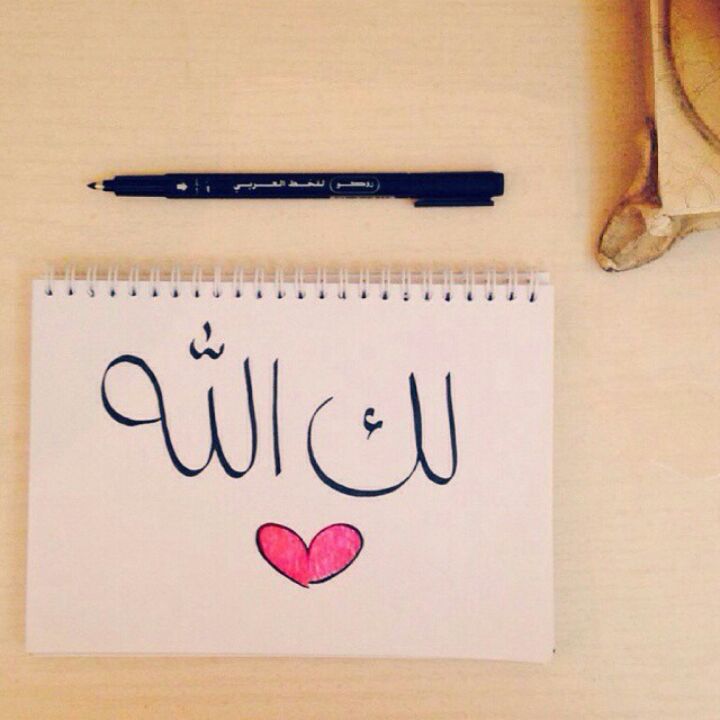 روكو للخط العربي
لك الله